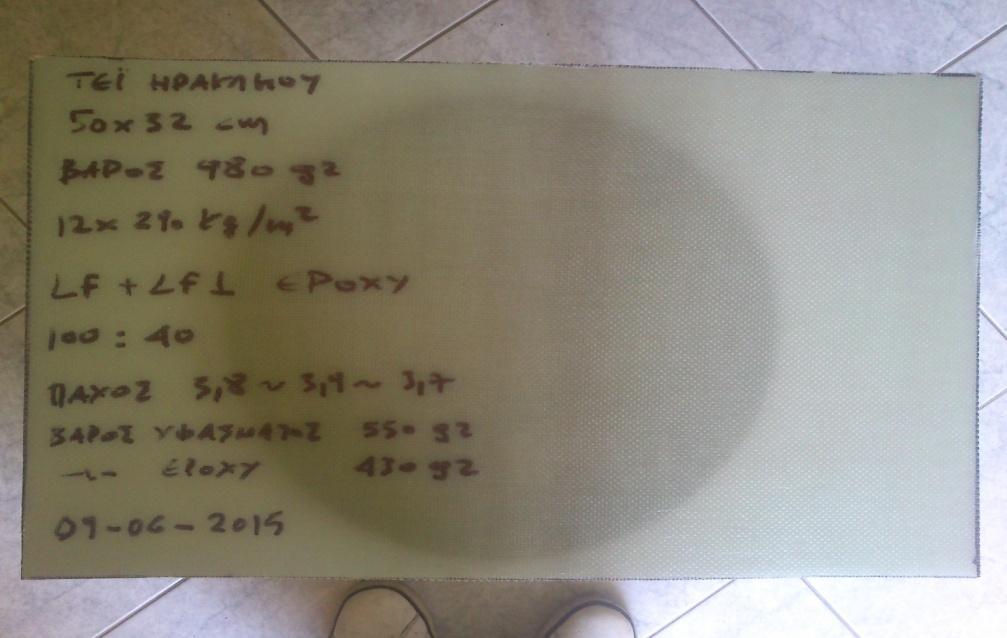 ΤΕΪ ΗΡΑΚΛΕΙΟΥ
50x32 cm
ΒΑΡΟΣ 980 gr
12x 290 kg/m²
LF + LF1 EPOXY
100 : 40
ΠΑΧΟΣ 3,8 ~ 3,9 ~ 3,7
ΒΑΡΟΣ ΥΦΑΣΜΑΤΟΣ 550 gr
-〃- EPOXY 430 gr
09-06-2015